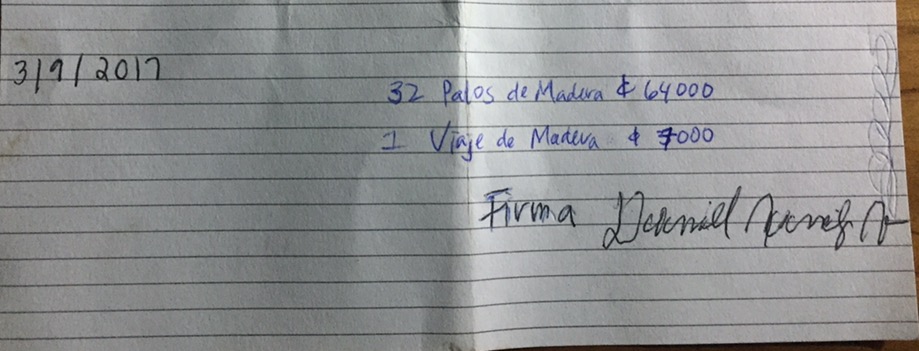 3/9/2017
32 Palos de Madera ₡ 64000
1 Viaje de Madera ₡ 7000
Firma Daniel